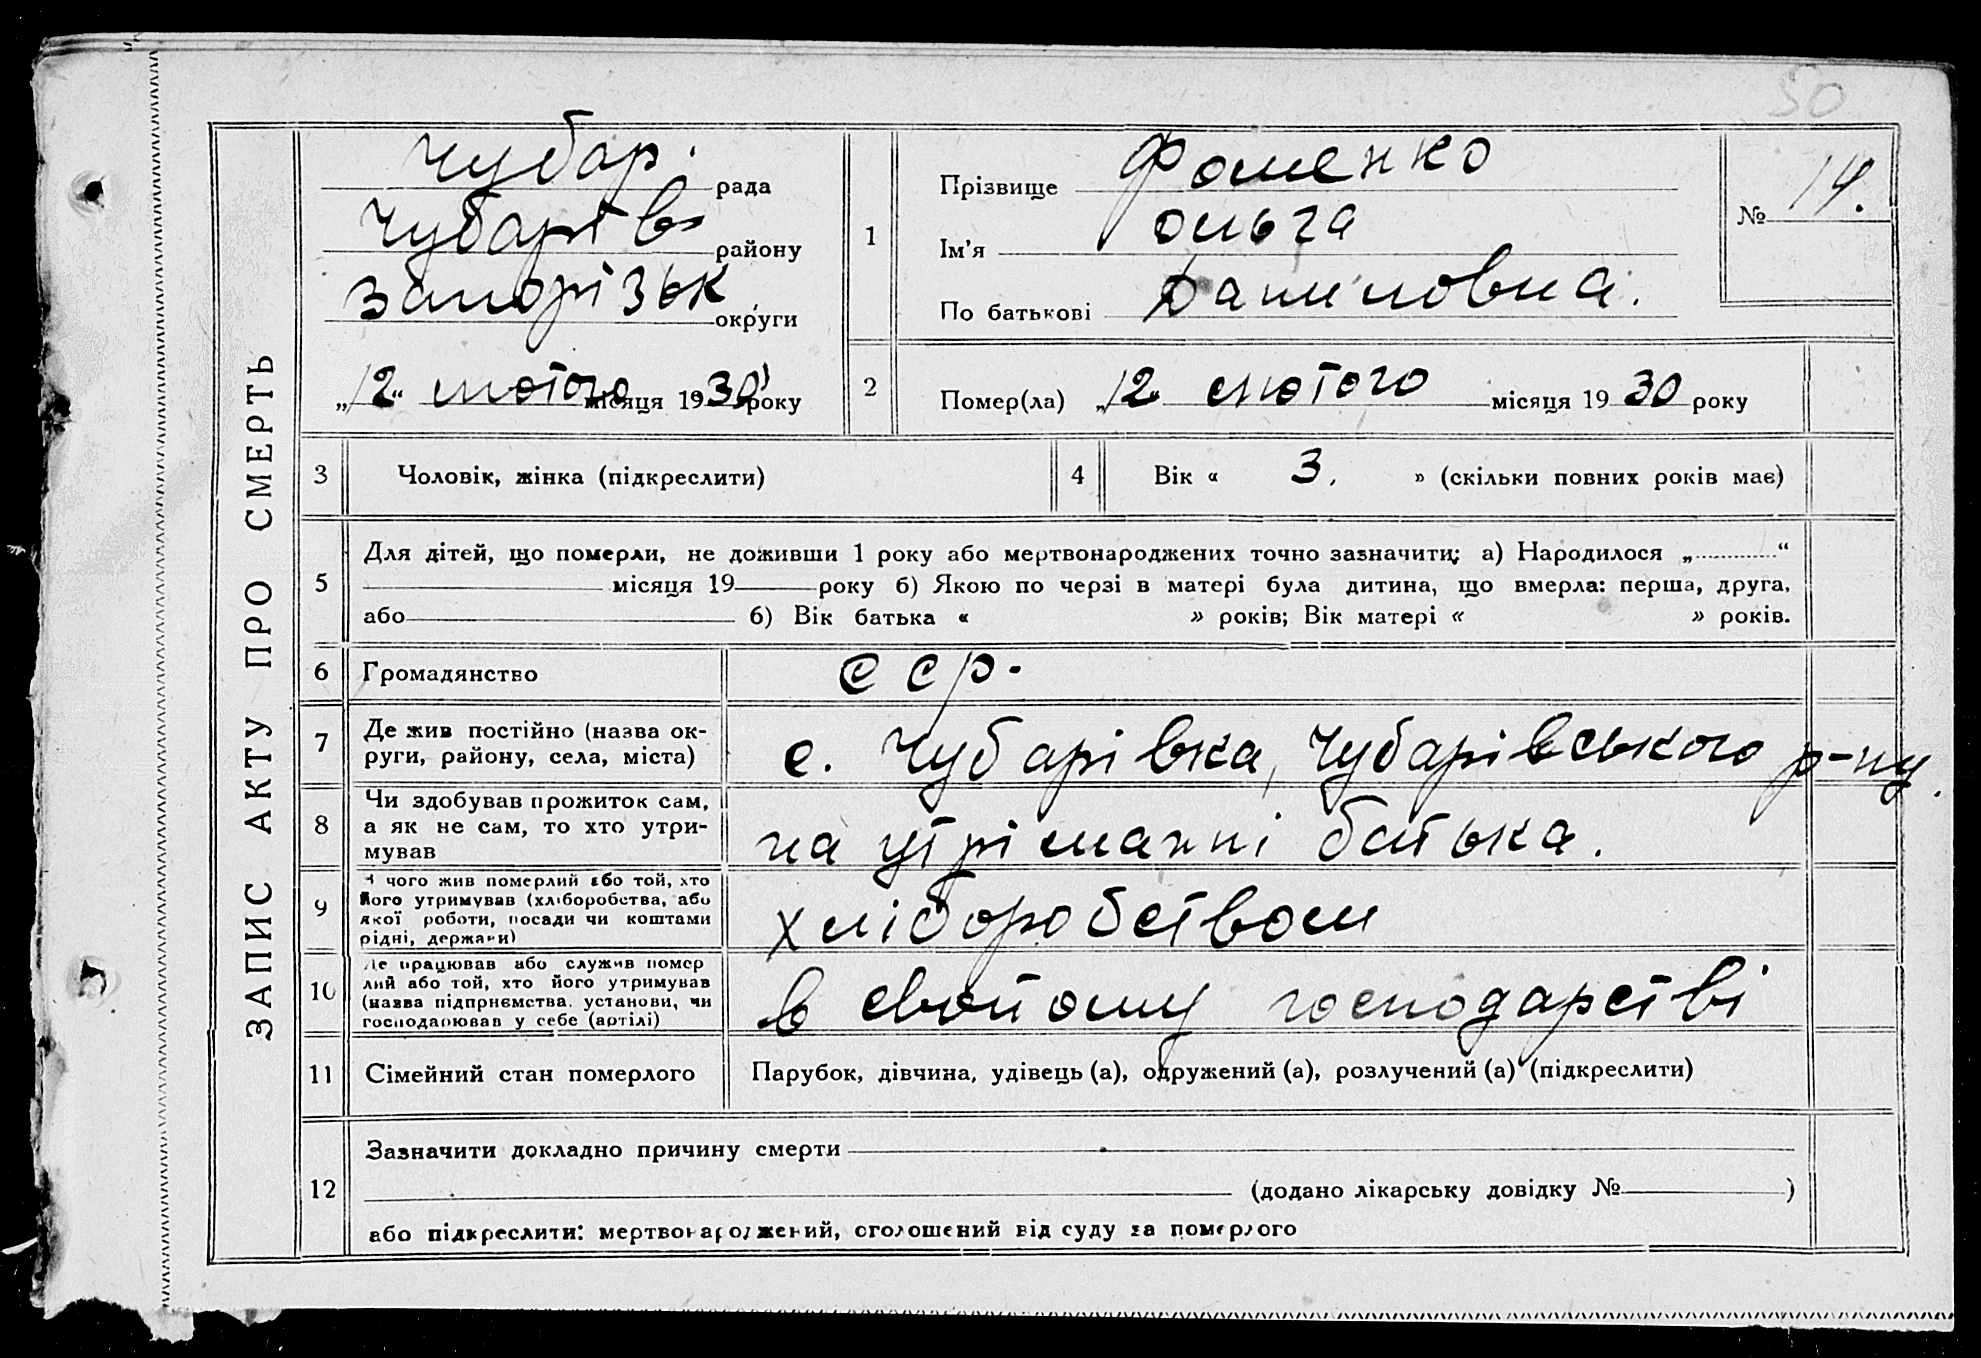 50
ЗАПИС АКТУ ПРО СМЕРТЬ
Чубар. рада
Чубарівˢ району
Запорізьк округи
„12“ лютого місяця 1930 року
1
Прізвище Фоменко
Ім'я Ольга
По батькові Даниловна.
№ 14.
2
Помер(ла) „12“ лютого місяця 1930 року
3 Чоловік, жінка (підкреслити)
4 Вік « 3. » (скільки повних років має)
5
Для дітей, що померли, не доживши 1 року або мертвонароджених точно зазначити: а) Народилося „ “
місяця 19 року б) Якою по черзі в матері була дитина, що вмерла: перша, друга,
або б) Вік батька « » років; Вік матері « » років.
6 Громадянство ССР.
7
Де жив постійно (назва ок-
руги, району, села, міста)
с. Чубарівка, Чубарівського р-ну.
8
Чи здобував прожиток сам,
а як не сам, то хто утри-
мував
на утріманні батька.
9
З чого жив померлий або той, хто
його утримував (хліборобства, або
якої роботи, посади чи коштами
рідні, держави)
хліборобством
10
Де працював або служив помер
лий або той, хто його утримував
(назва підприємства, установи, чи
господарював у себе (артілі)
в свойому господарстві
11 Сімейний стан померлого Парубок, дівчина, удівець (а), одружений (а), розлучений (а) (підкреслити)
12
Зазначити докладно причину смерти
(додано лікарську довідку № )
або підкреслити: мертвонароджений, оголошений від суду за померлого